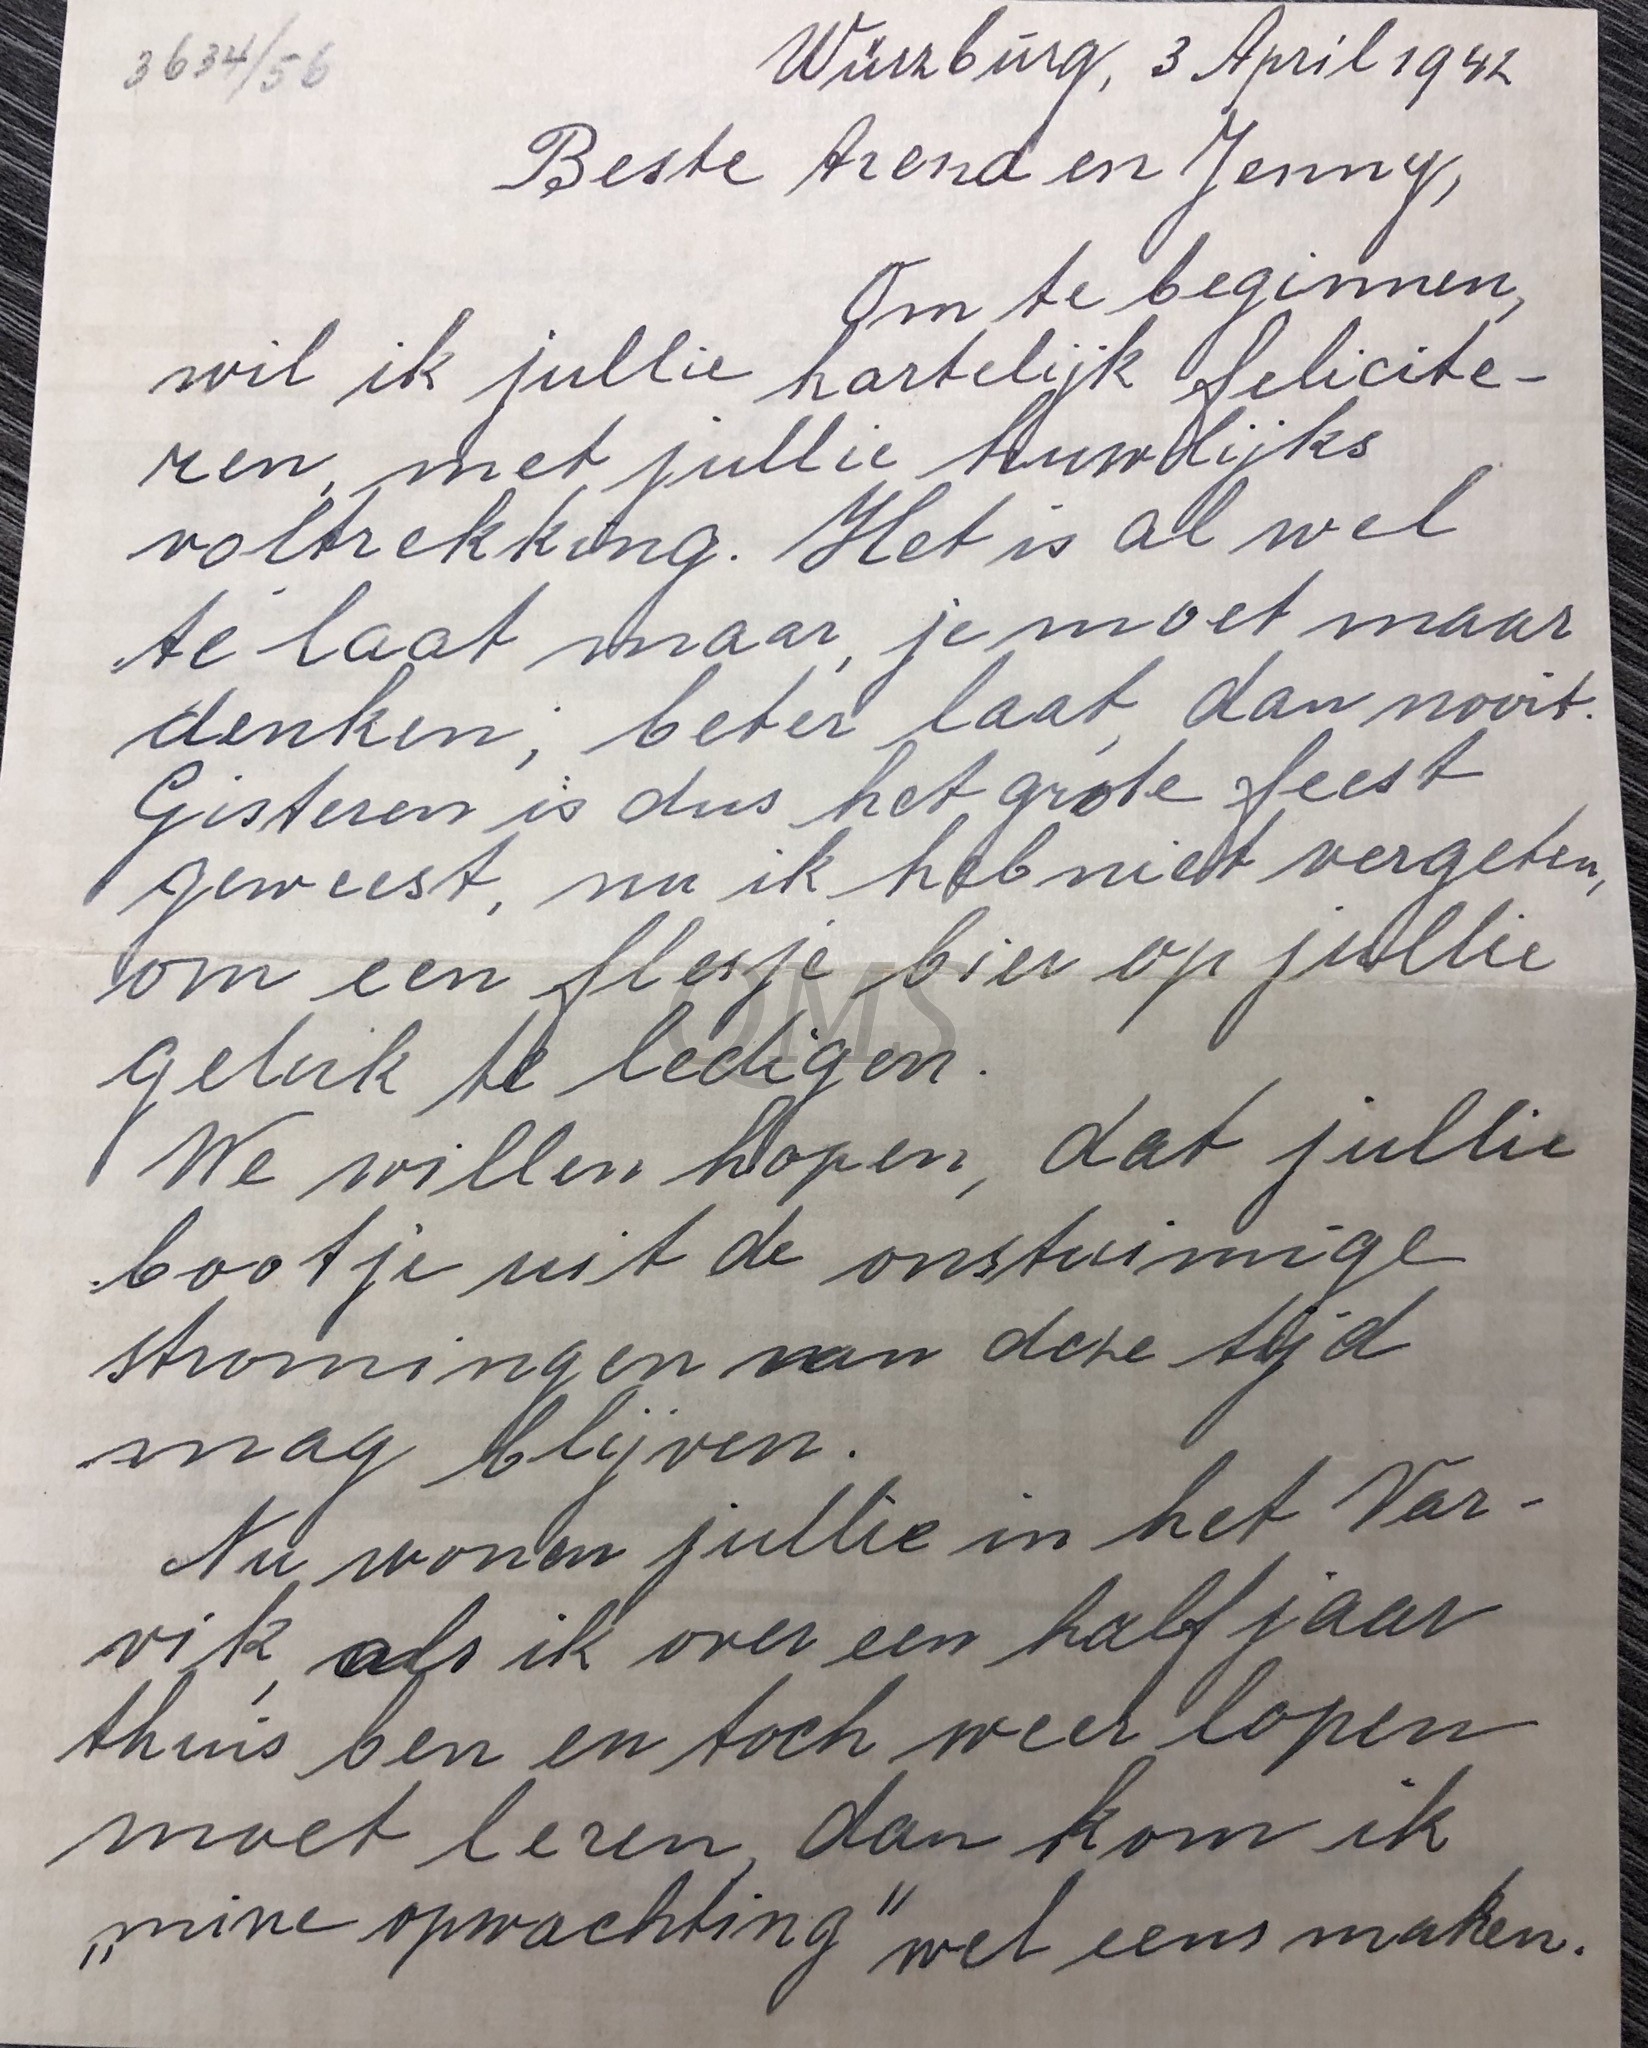 3634/56
Würzbūrg, 3 April 1942
Beste Arend en Jenny,
Om te beginnen,
wil ik jullie hartelijk felicite-
ren, met jullie huwlijks
voltrekking. Het is al wel
te laat maar, je moet maar
denken; beter laat, dan nooit.
Gisteren is dus het grote feest
geweest, nu ik heb niet vergeten,
om een flesje bier op jullie
geluk te ledigen.
QMS
We willen hopen, dat jullie
bootje uit de onstuimige
stromingen van deze tijd
mag blijven.
Nu wonen jullie in het Var-
vik, als ik over een half jaar
thuis ben en toch weer lopen
moet leren, dan kom ik
„mine opwachting" wel eens maken.